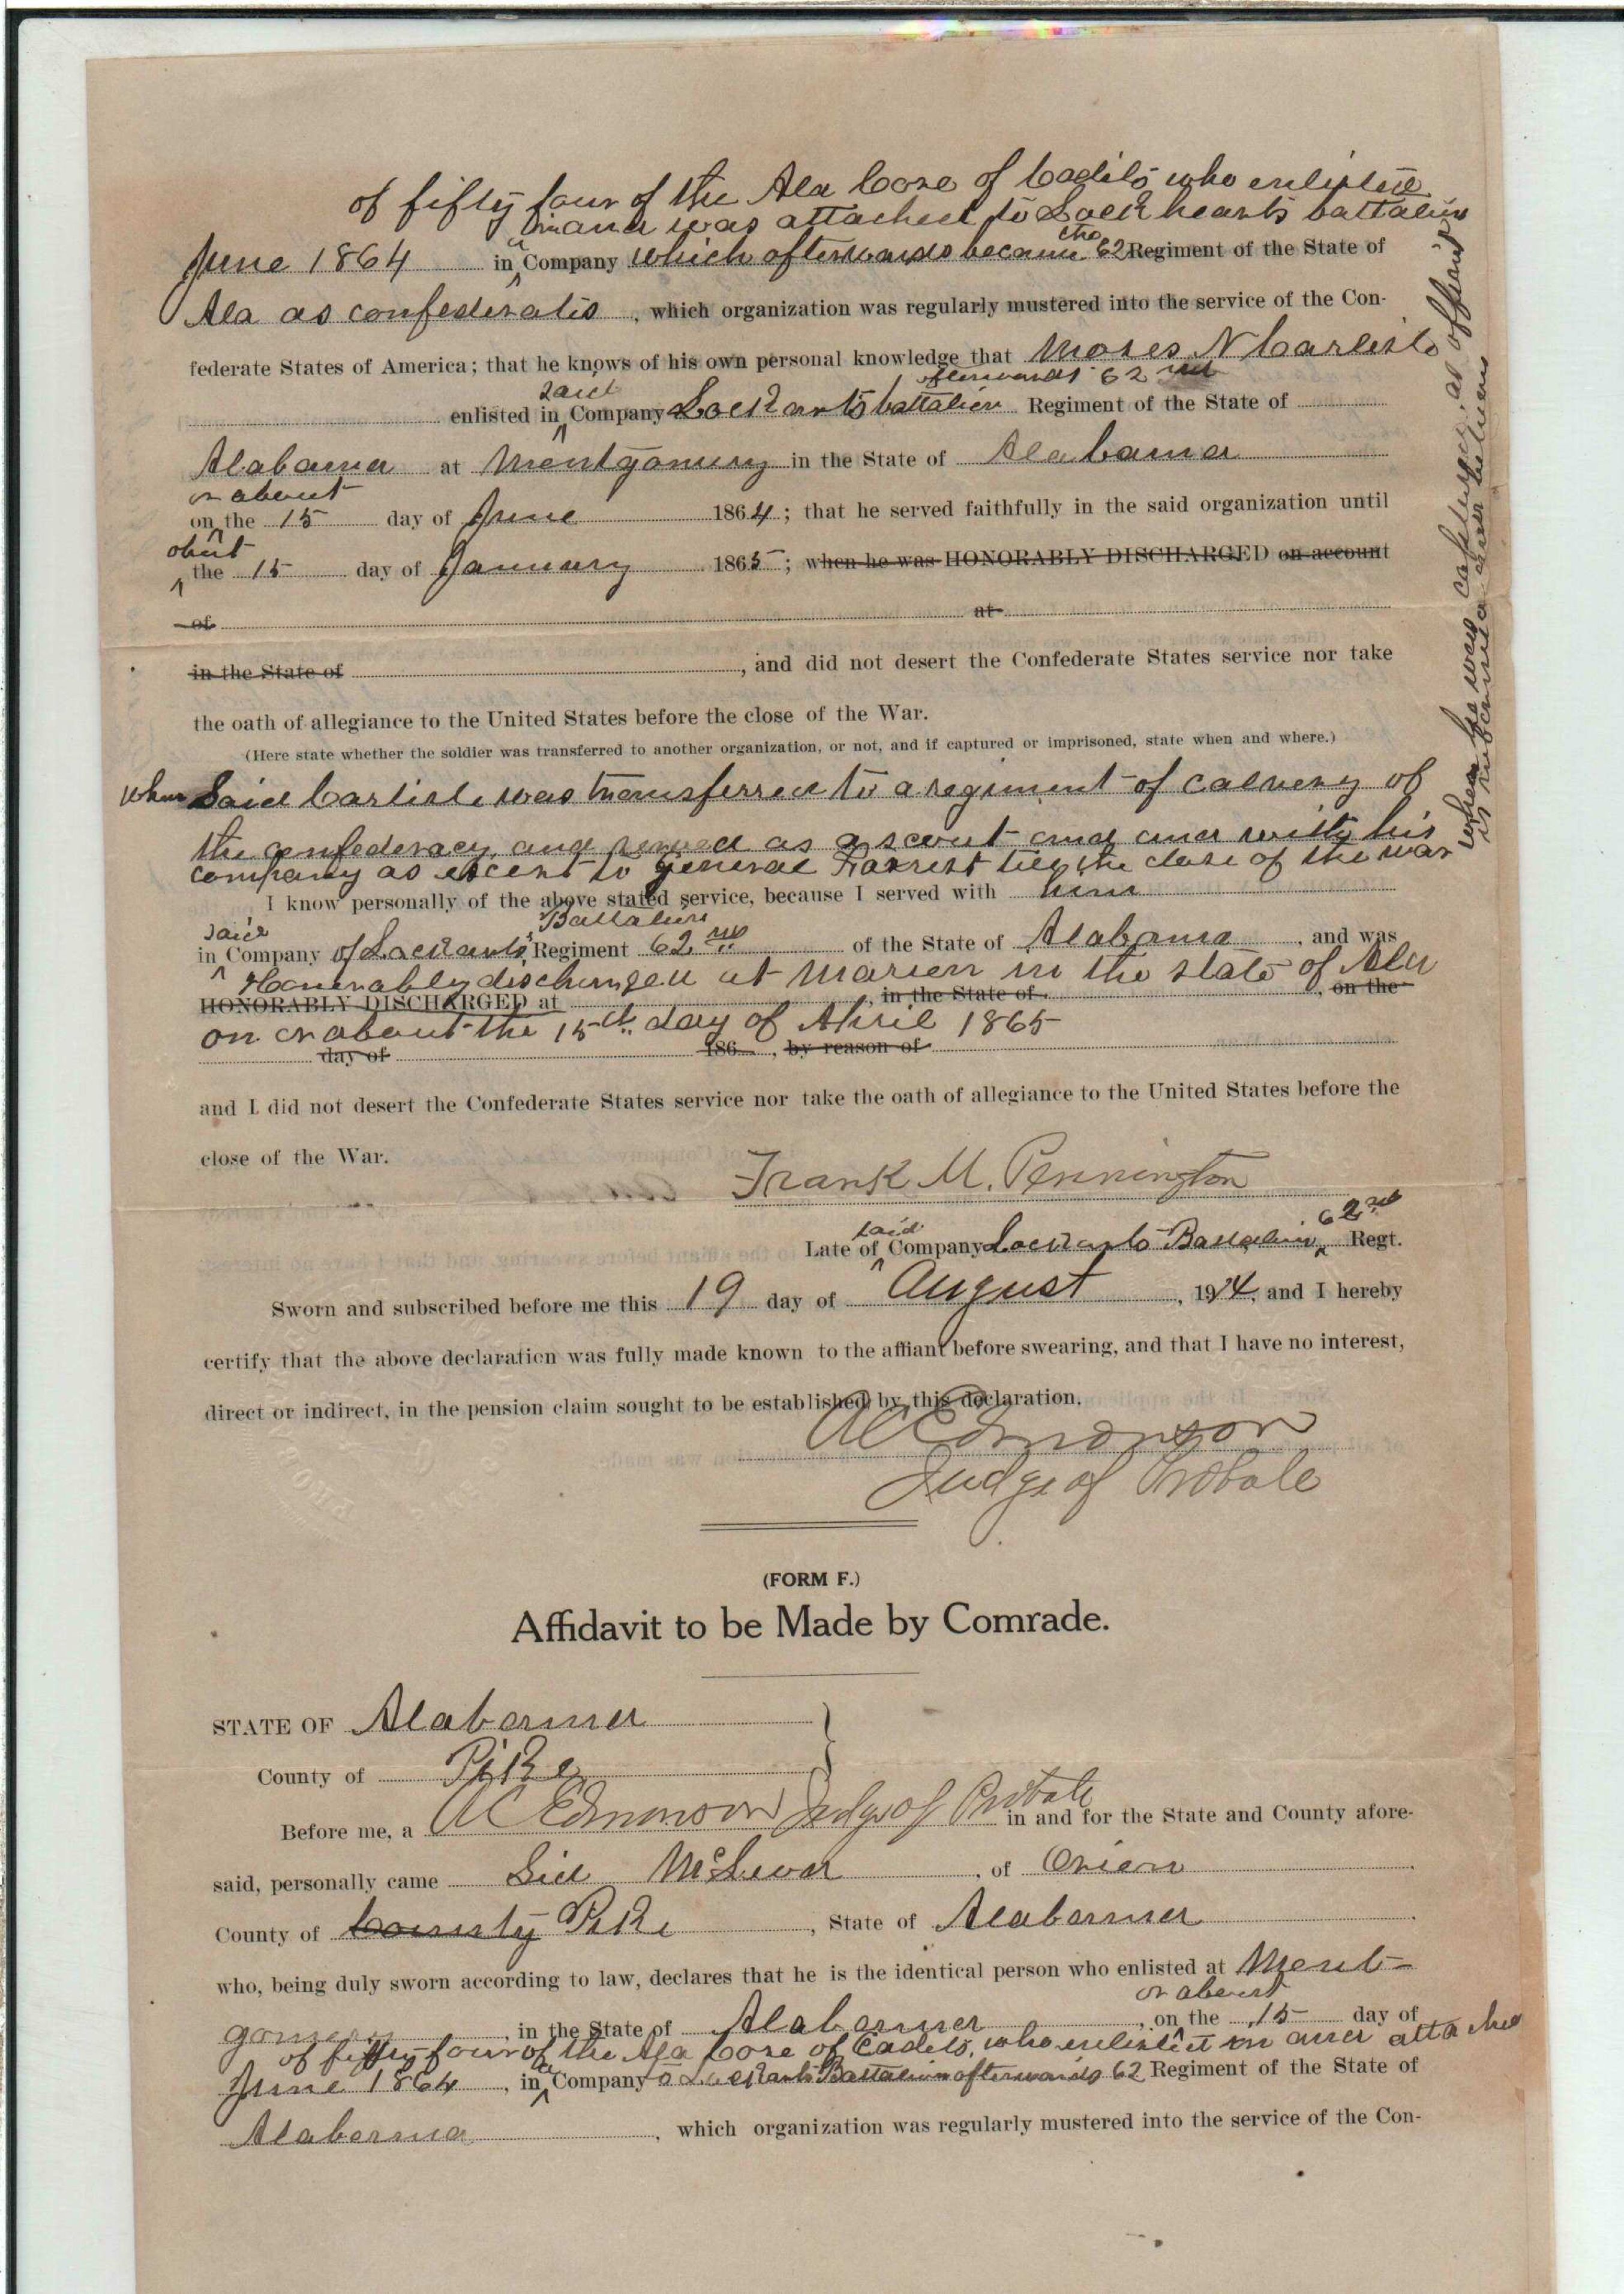 of fifty four of the Ala Core of Cadets who enlisted
in and was attached to Lockhearts battalion
June 1864 in a Company which afterwards became the 62 Regiment of the State of
Ala as confederates, which organization was regularly mustered into the service of the Con-
federate States of America; that he knows of his own personal knowledge that Moses N Carlisle
said afterwards 62nd
enlisted in Company Lockarts battalion Regiment of the State of
Alabama at Montgomery in the State of Alabama
or about
on the 15 day of June 1864; that he served faithfully in the said organization until
about
the 15 day of January 1865; when he was HONORABLY DISCHARGED on account
of at
in the State of , and did not desert the Confederate States service nor take
the oath of allegiance to the United States before the close of the War.
(Here state whether the soldier was transferred to another organization, or not, and if captured or imprisoned, state when and where.)
when Said Carlisle was transferred to a regiment of calvery of
the confederacy and served as a scout and with his
company as to general Forrest the close of the war
I know personally of the above stated service, because I served with him
said Battalion
in Company of Lockarts Regiment 62nd of the State of Alabama, and was
Honorably discharged at Marion in the state of Ala
HONORABLY DISCHARGED at , in the State of , on the
on or about the 15th day of April 1865
day of 186 , by reason of
and I did not desert the Confederate States service nor take the oath of allegiance to the United States before the
close of the War.
Frank M. Pennington
said 62nd
Late of Company Lockarts Battalion Regt.
Sworn and subscribed before me this 19 day of August, 1914, and I hereby
certify that the above declaration was fully made known to the affiant before swearing, and that I have no interest,
direct or indirect, in the pension claim sought to be established by this declaration.
A C Edmonson
Judge of Probate
when he was captured, as affiant
is informed and believes
(FORM F.)
Affidavit to be Made by Comrade.
STATE OF Alabama
County of Pike
Before me, a A C Edmonson Judge of Probate in and for the State and County afore-
said, personally came Sid McLeod, of Orion
County of County Pike, State of Alabama
who, being duly sworn according to law, declares that he is the identical person who enlisted at Mont-
or about
gomery, in the State of Alabama, on the 15 day of
of fifty four of the Ala Core of Cadets, who enlisted in and attached
June 1864, in a Company to Lockarts Battalion afterwards 62 Regiment of the State of
Alabama, which organization was regularly mustered into the service of the Con-